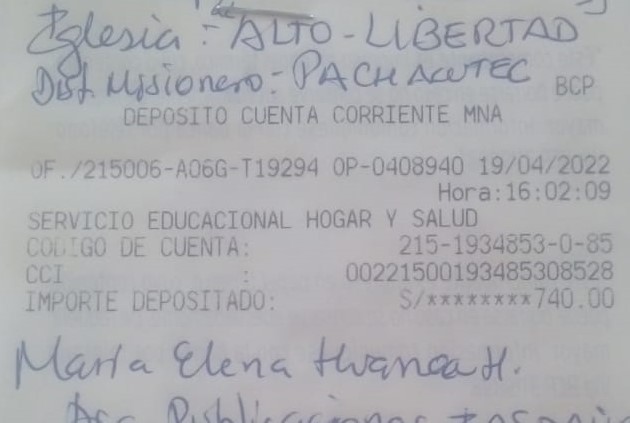 Iglesia: ALTO-LIBERTAD
Dist. Misionero: PACHACUTEC
BCP
DEPOSITO CUENTA CORRIENTE MNA
OF./215006-A06G-T19294 OP-0408940 19/04/2022
Hora:16:02:09
SERVICIO EDUCACIONAL HOGAR Y SALUD
CODIGO DE CUENTA: 215-1934853-0-85
CCI : 00221500193485308528
IMPORTE DEPOSITADO: S/********740.00
María Elena Huanca H.
Publicaciones